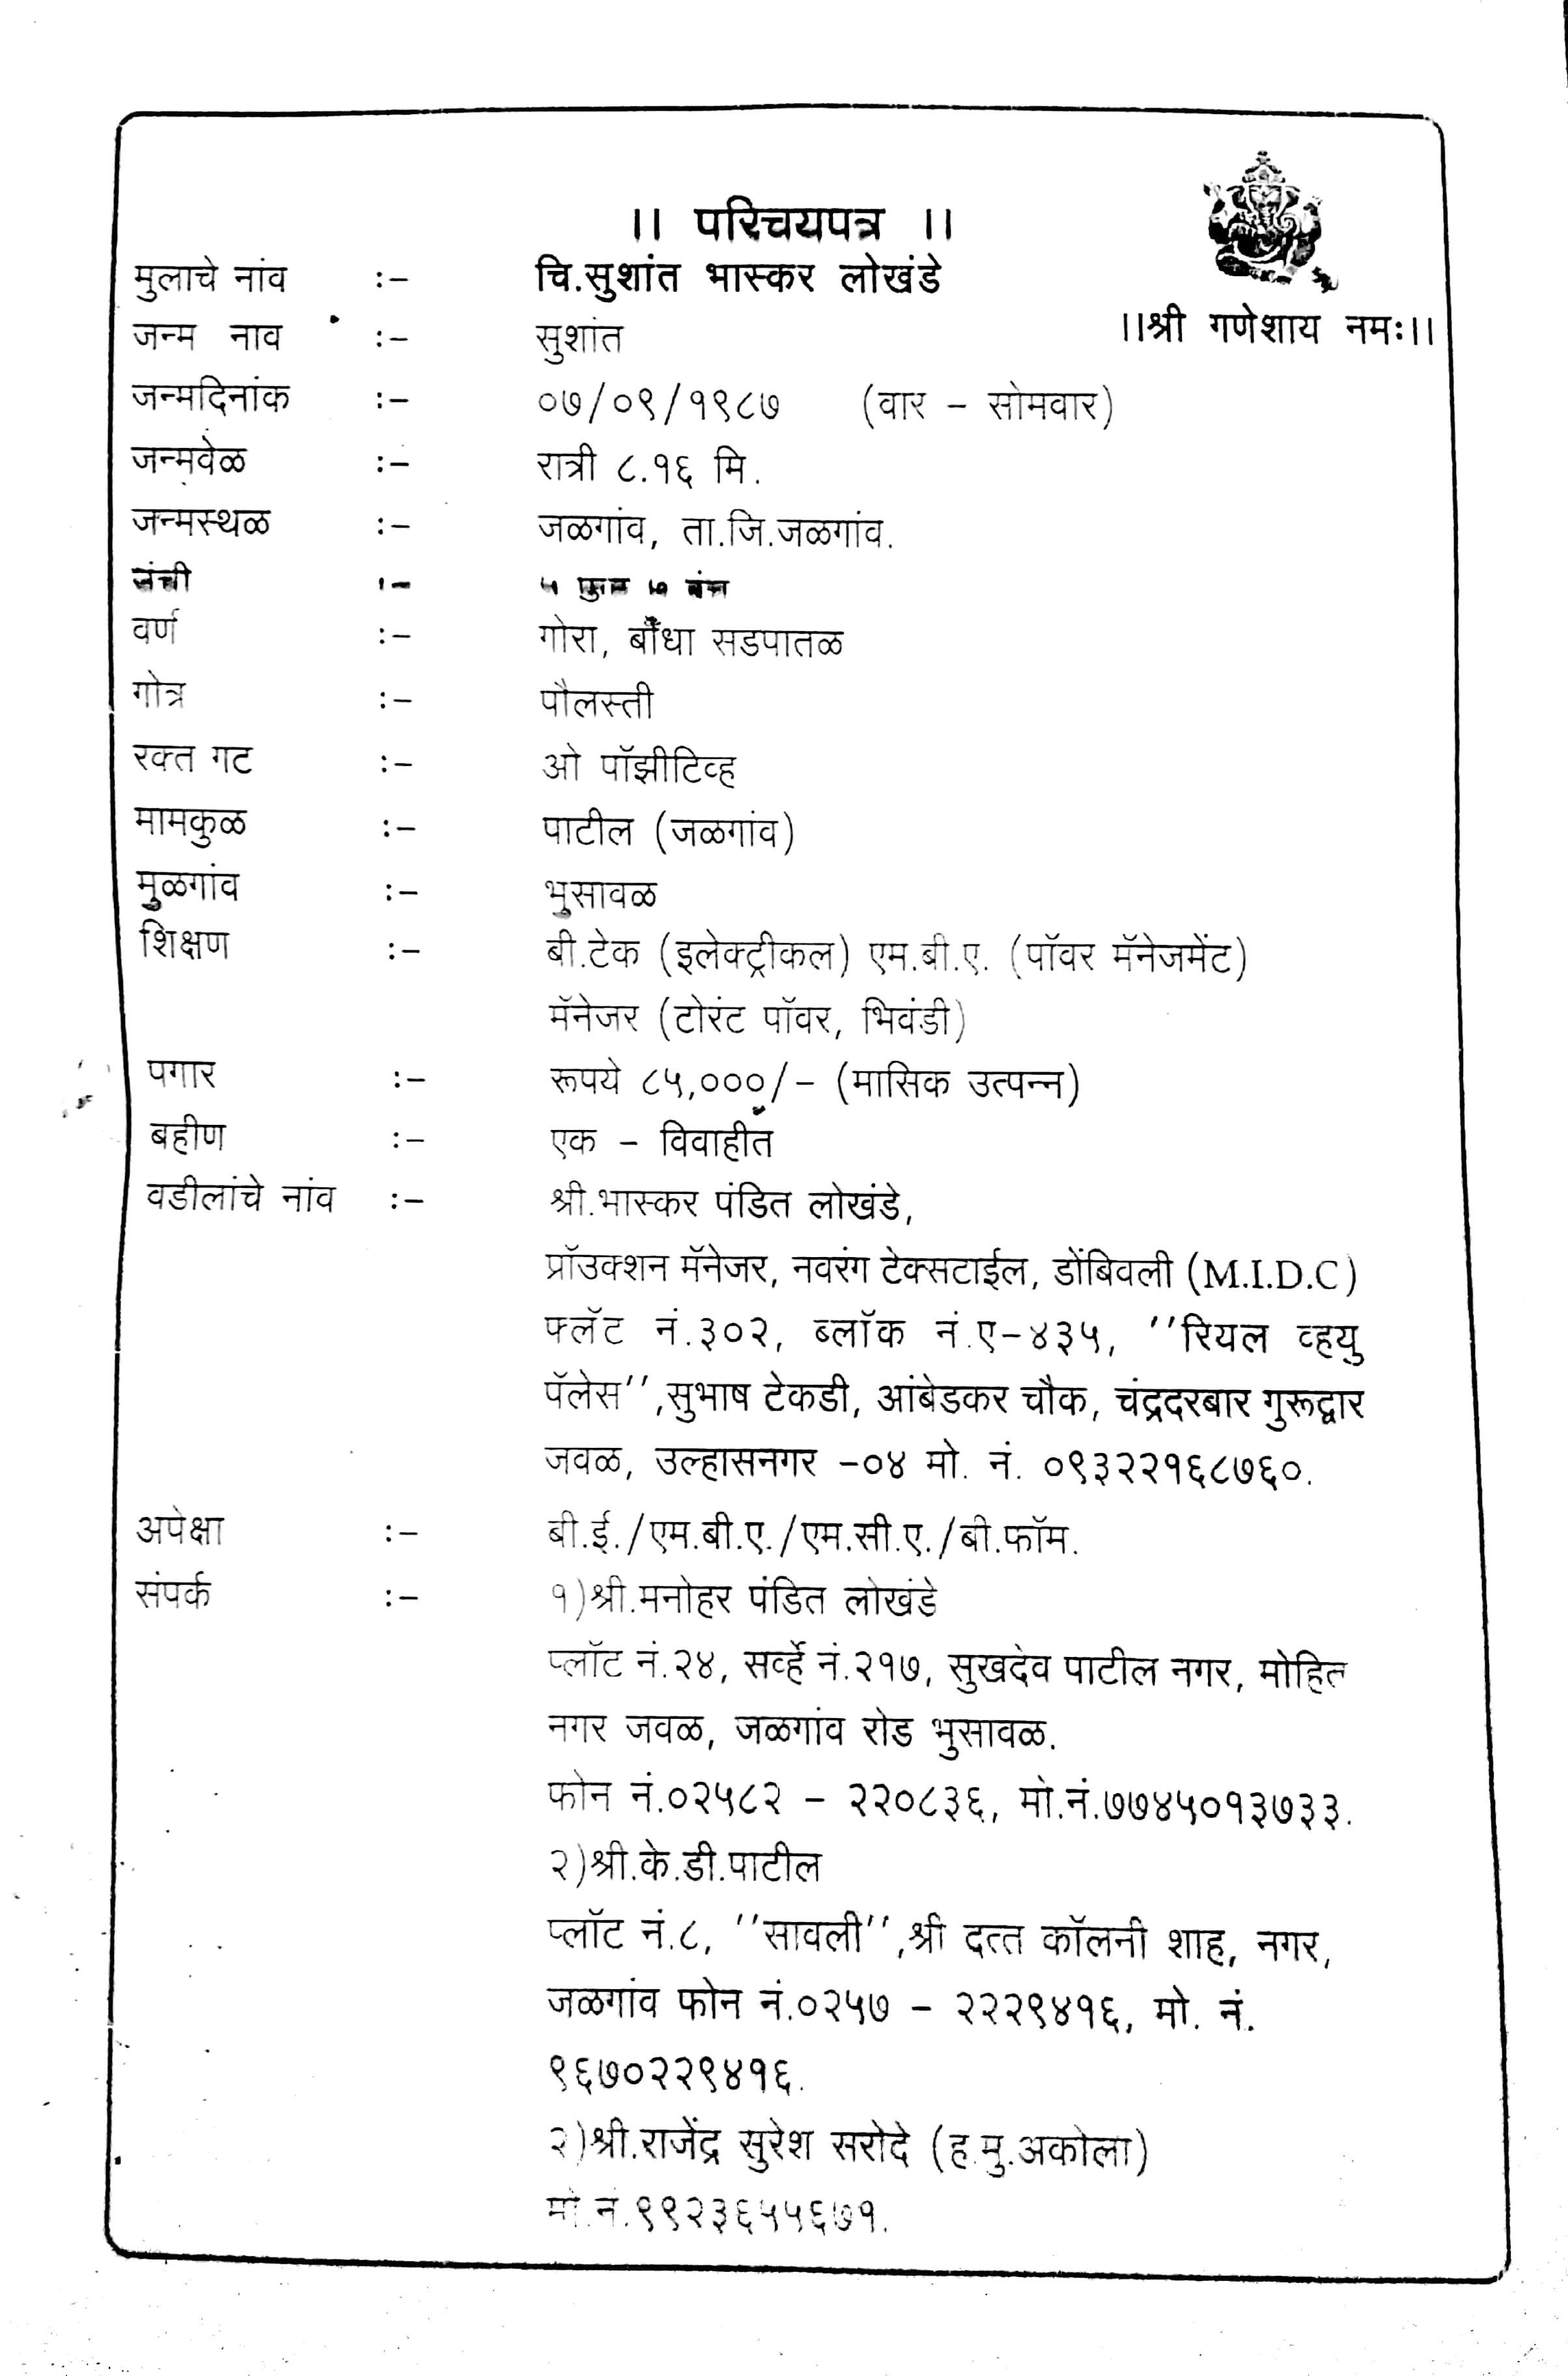 ।। परिचयपत्र ।।
मुलाचे नांव :- चि.सुशांत भास्कर लोखंडे
।।श्री गणेशाय नमः।।
जन्म नाव :- सुशांत
जन्मदिनांक :- ०७/०९/१९८७ (वार - सोमवार)
जन्मवेळ :- रात्री ८.१६ मि.
जन्मस्थळ :- जळगांव, ता.जि.जळगांव.
:- ५ फुट ७
वर्ण :- गोरा, बांधा सडपातळ
गोत्र :- पौलस्ती
रक्त गट :- ओ पॉझीटिव्ह
मामकुळ :- पाटील (जळगांव)
मुळगांव :- भुसावळ
शिक्षण :- बी.टेक (इलेक्ट्रीकल) एम.बी.ए. (पॉवर मॅनेजमेंट)
मॅनेजर (टोरंट पॉवर, भिवंडी)
पगार :- रूपये ८५,०००/- (मासिक उत्पन्न)
बहीण :- एक - विवाहीत
वडीलांचे नांव :- श्री.भास्कर पंडित लोखंडे,
प्रॉउक्शन मॅनेजर, नवरंग टेक्सटाईल, डोंबिवली (M.I.D.C)
फ्लॅट नं.३०२, ब्लॉक नं.ए-४३५, ''रियल व्हयु
पॅलेस'',सुभाष टेकडी, आंबेडकर चौक, चंद्रदरबार गुरूद्वार
जवळ, उल्हासनगर -०४ मो. नं. ०९३२२१६८७६०.
अपेक्षा :- बी.ई./एम.बी.ए./एम.सी.ए./बी.फॉम.
संपर्क :- १)श्री.मनोहर पंडित लोखंडे
प्लॉट नं.२४, सर्व्हे नं.२१७, सुखदेव पाटील नगर, मोहित
नगर जवळ, जळगांव रोड भुसावळ.
फोन नं.०२५८२ - २२०८३६, मो.नं.७७४५०१३७३३.
२)श्री.के.डी.पाटील
प्लॉट नं.८, ''सावली'',श्री दत्त कॉलनी शाह, नगर,
जळगांव फोन नं.०२५७ - २२२९४१६, मो. नं.
९६७०२२९४१६.
२)श्री.राजेंद्र सुरेश सरोदे (ह.मु.अकोला)
मो.नं.९९२३६५५६७१.